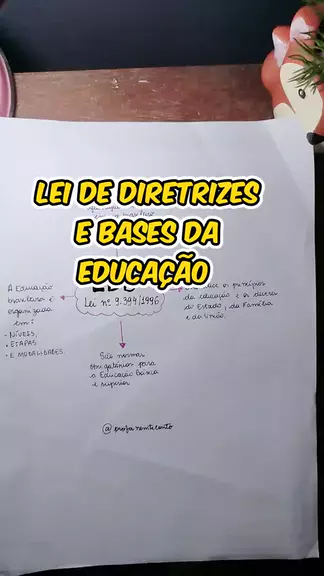 LEI DE DIRETRIZES
E BASES DA
EDUCAÇÃO
Lei nº 9.394/1996
A Educação
brasileira é
organizada
em:
• NÍVEIS,
• ETAPAS
• E MODALIDADES.
os princípios
da educação e os deveres
do Estado, da Família
e da União.
São normas
obrigatórias para
a Educação Básica
e superior